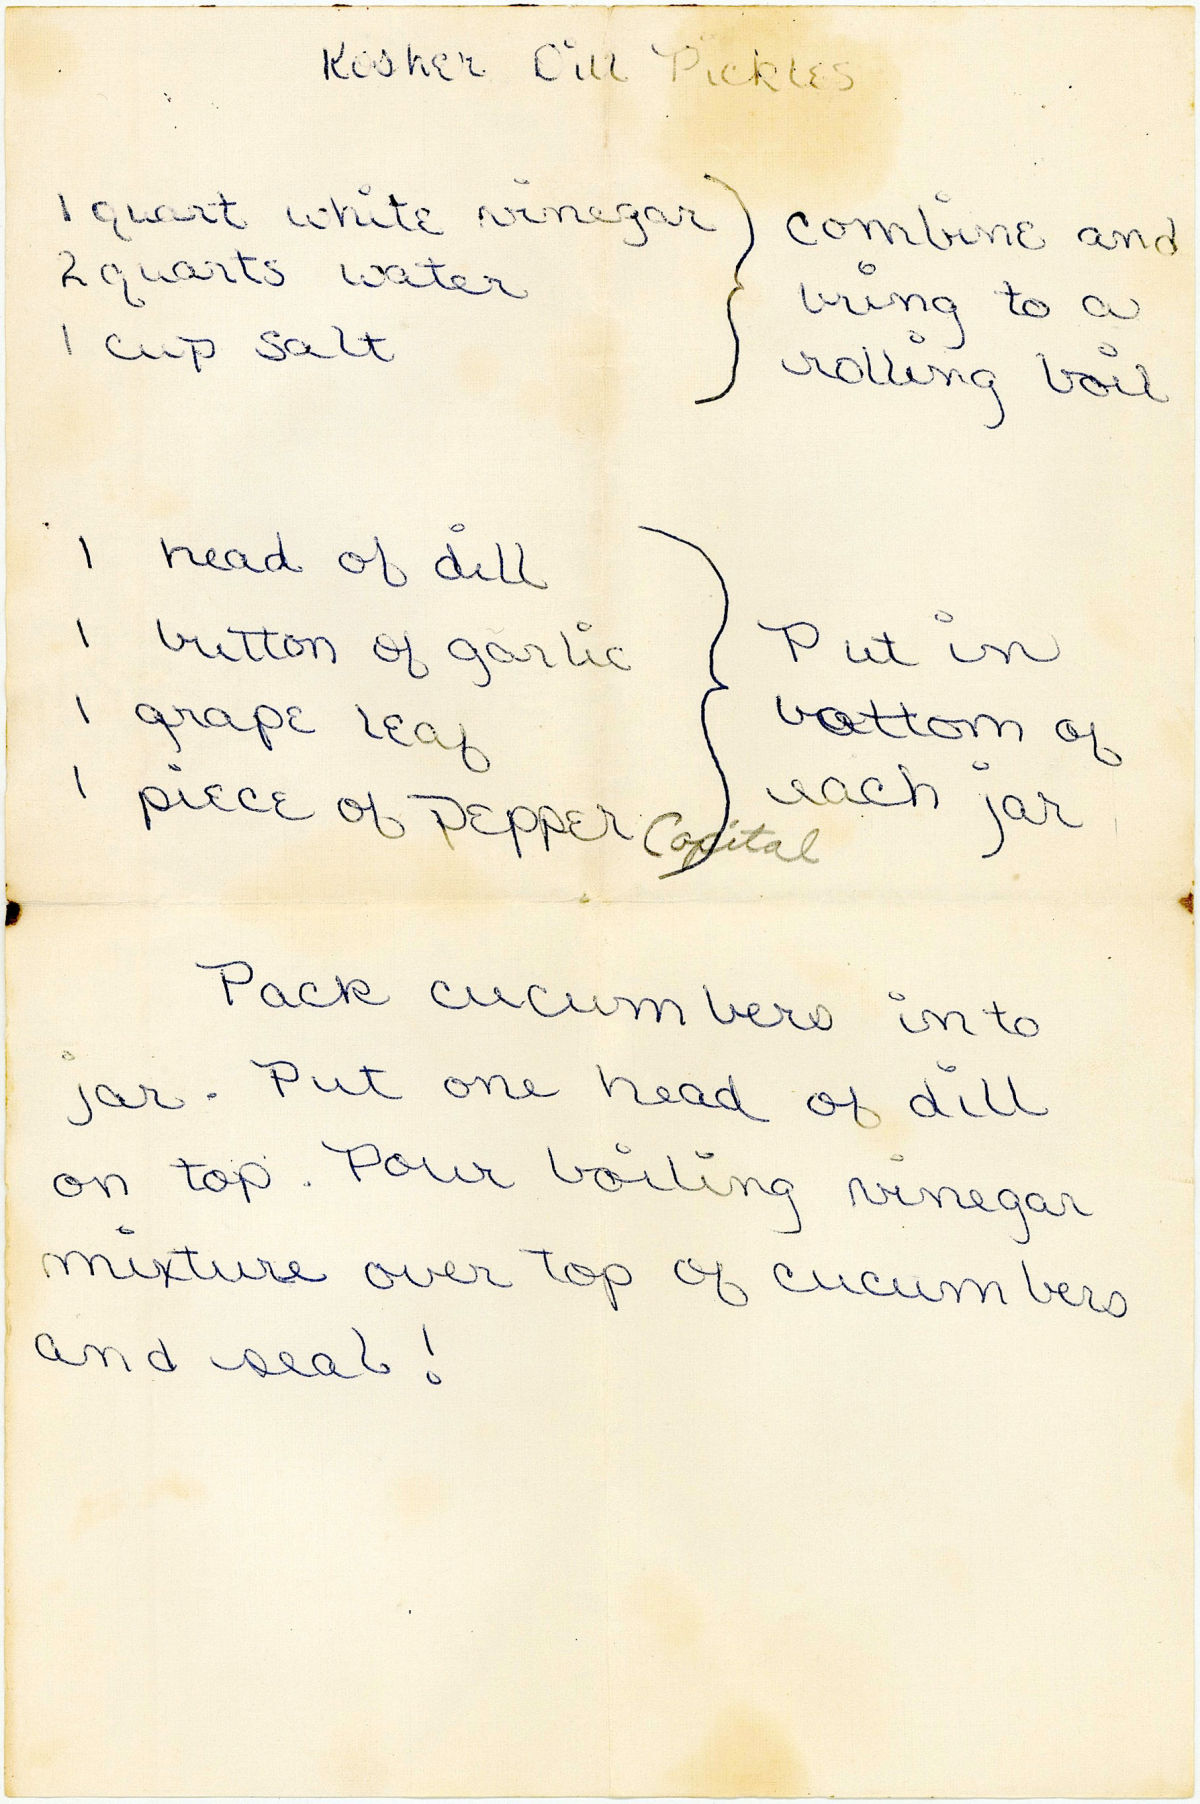 Kosher Dill Pickles
1 quart white vinegar
2 quarts water
1 cup salt
combine and
bring to a
rolling boil
1 head of dill
1 button of garlic
1 grape leaf
1 piece of pepper Capital
Put in
bottom of
each jar
Pack cucumbers into
jar. Put one head of dill
on top. Pour boiling vinegar
mixture over top of cucumbers
and seal!